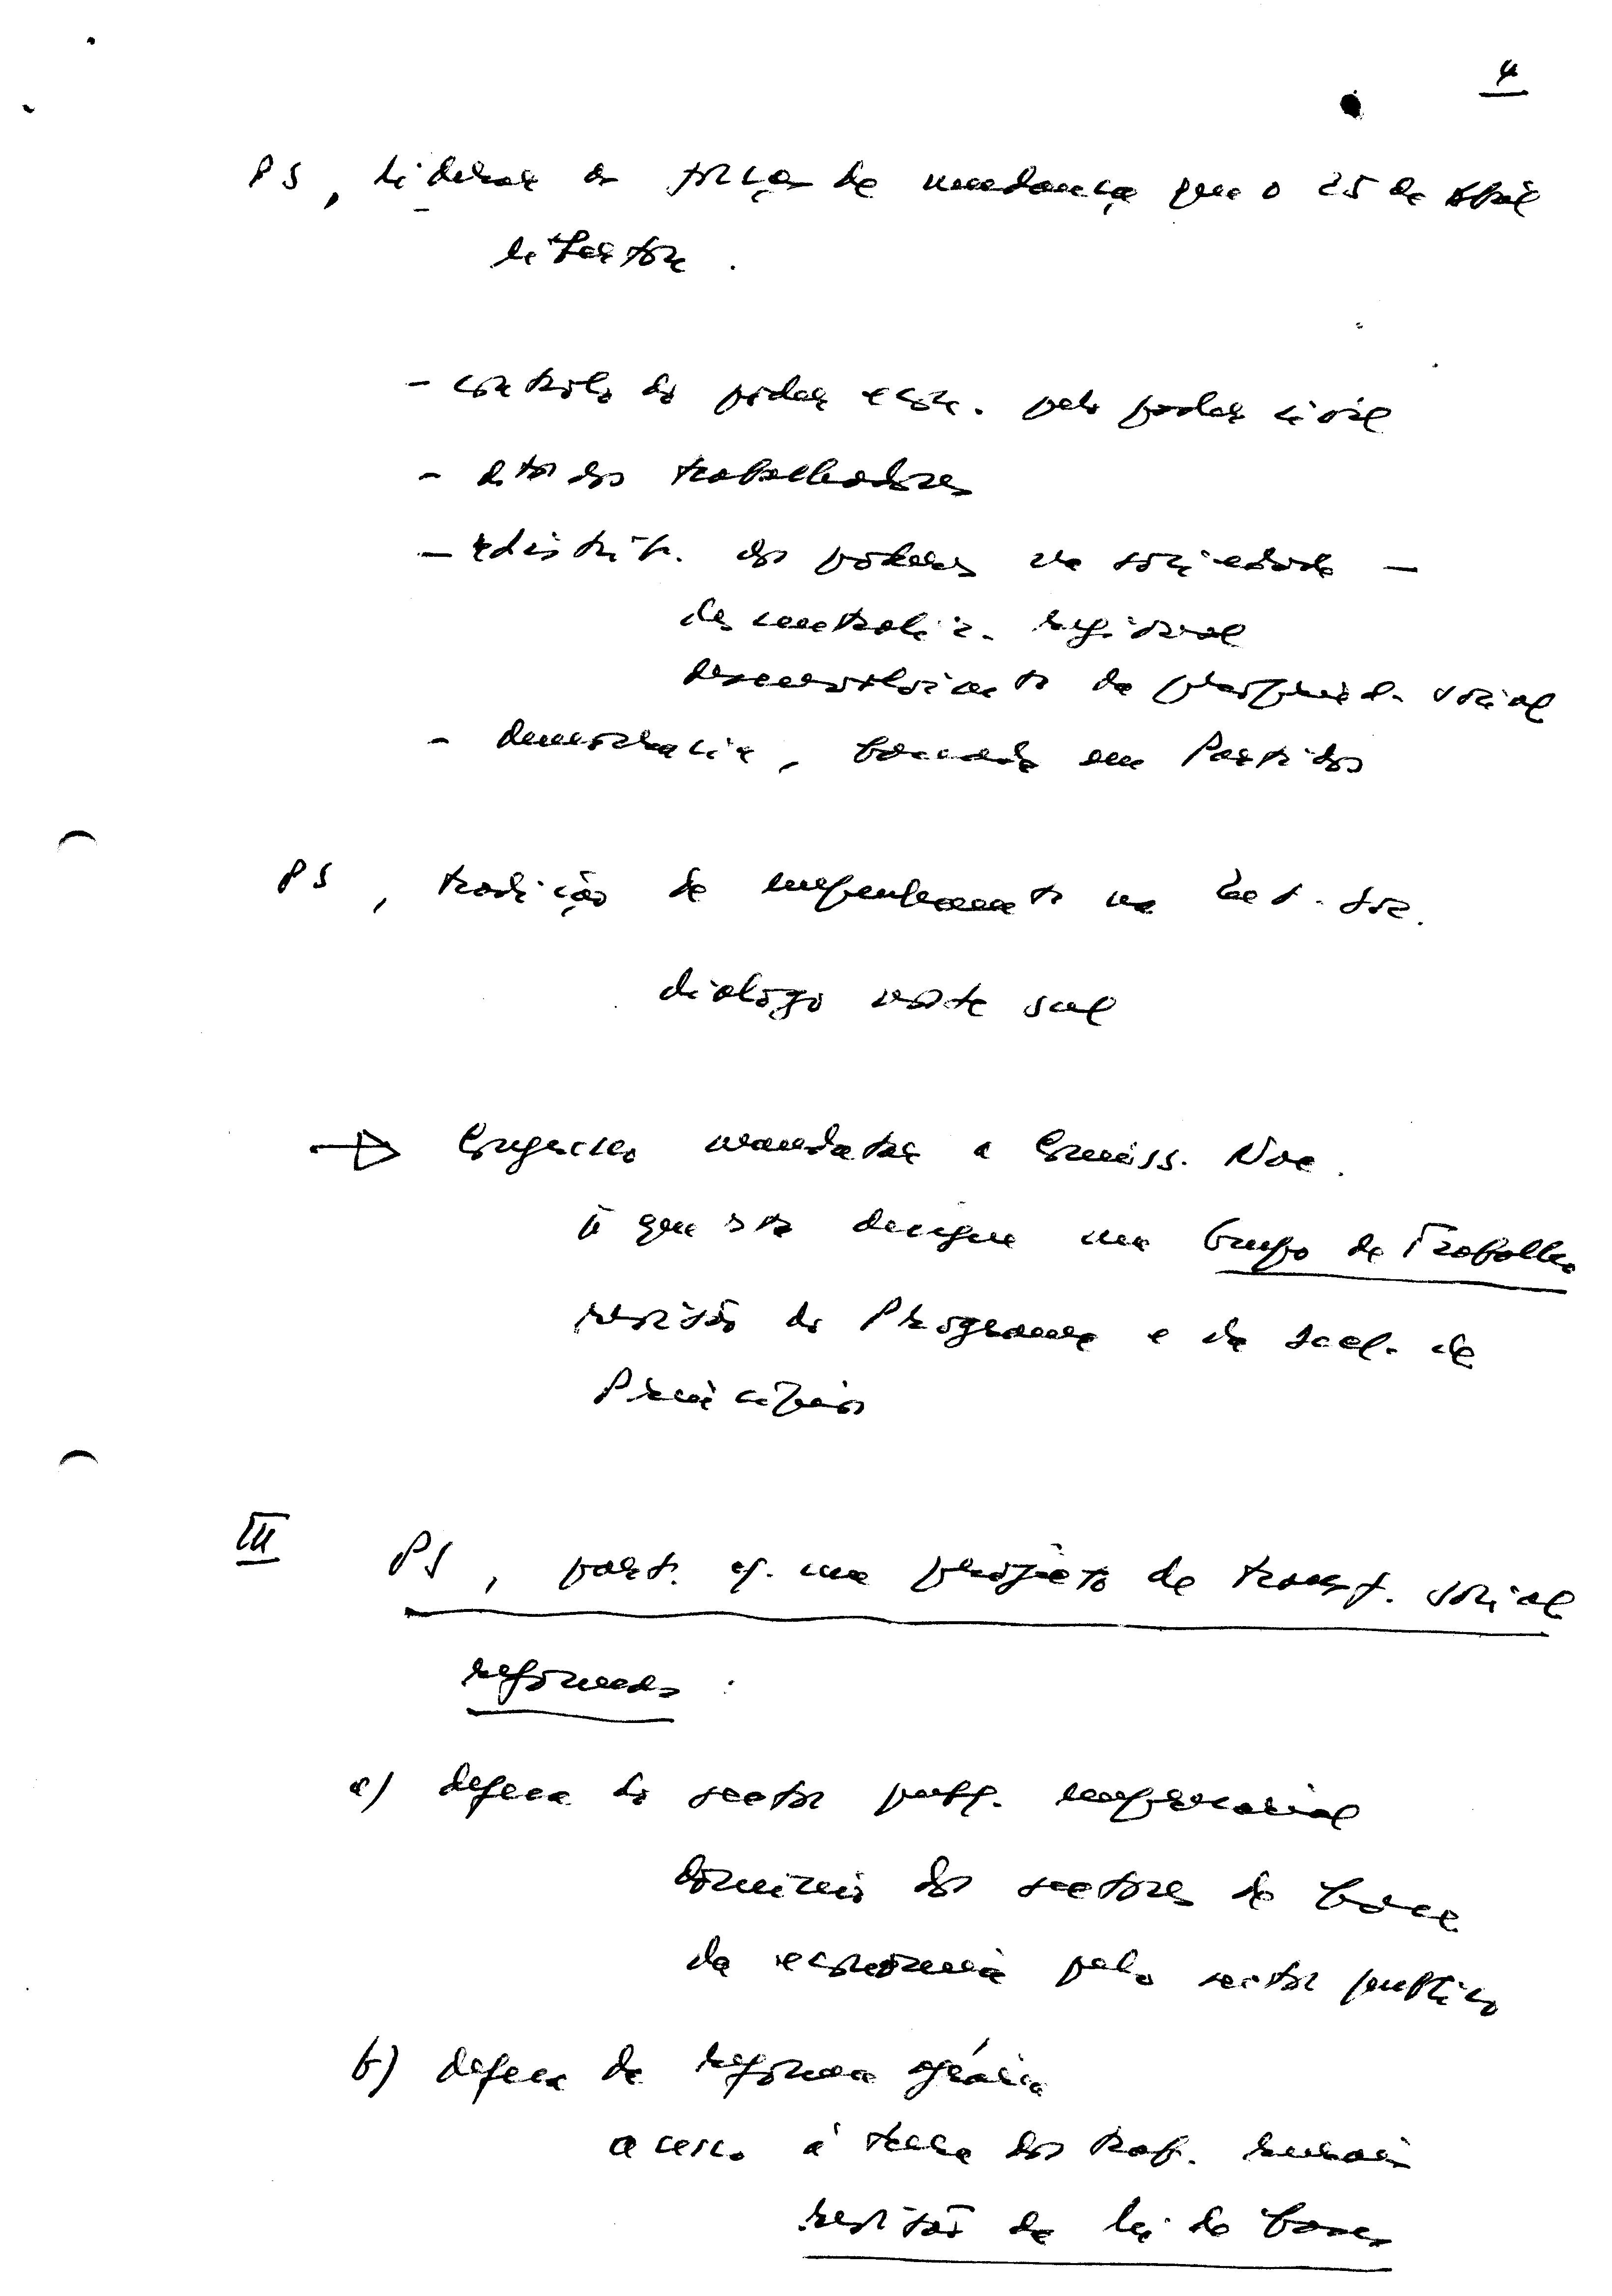 4
PS, liderar as forças de mudança que o 25 de Abril
libertou.
- controlo do poder econ. pelo poder civil
- dtos dos trabalhadores
- redistrib. dos poderes na sociedade -
descentraliz. regional
desenvolvimento da propried. social
- democracia, baseada em Partidos
PS, tradição de empenhamento na Int. Soc.
diálogo norte sul
→ Congresso mandatar a Comiss. Nac.
p. que esta designe um Grupo de Trabalho
revisão do Programa e da Decl. de
Princípios
III PS, part. c/. um projecto de transf. social
reformada :
a) defesa do sector publ. empresarial
domínio dos sectores de base
da economia pelo sector público
b) defesa da reforma agrária
acesso à terra dos trab. rurais
revisão da lei de bases